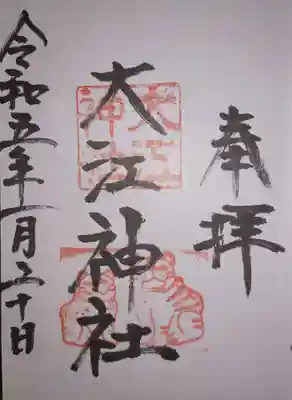 奉拝
大江神社
令和五年一月三十日